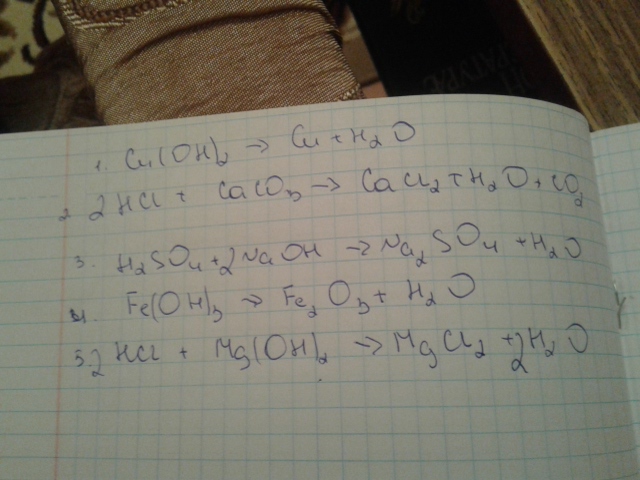 РАТУРА
1. Cu(OH)₂ → Cu + H₂O
2. 2HCl + CaCO₃ → CaCl₂ + H₂O + CO₂
3. H₂SO₄ + 2NaOH → Na₂SO₄ + H₂O
4. Fe(OH)₃ → Fe₂O₃ + H₂O
5. 2HCl + Mg(OH)₂ → MgCl₂ + 2H₂O